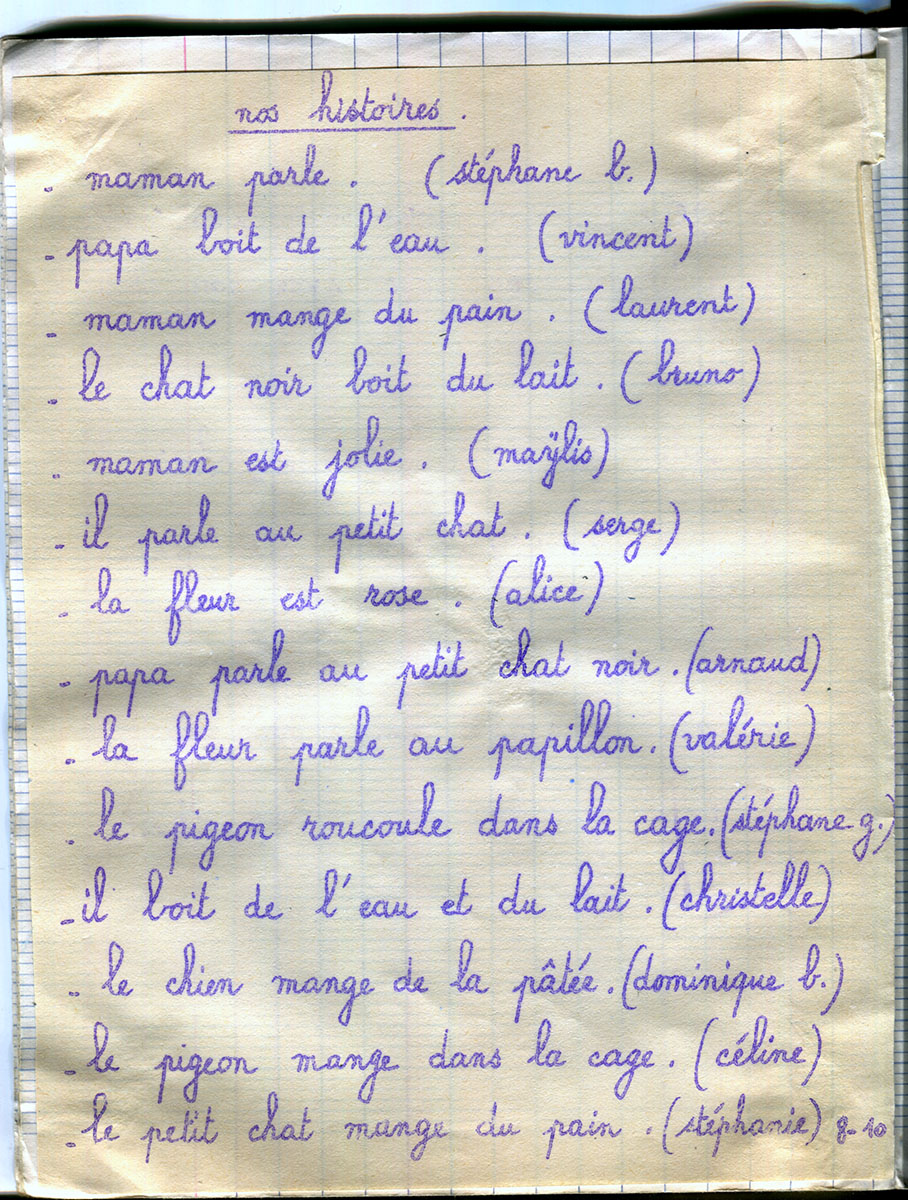 nos histoires.
- maman parle. (stéphane b.)
- papa boit de l'eau. (vincent)
- maman mange du pain. (laurent)
- le chat noir boit du lait. (bruno)
- maman est jolie. (maÿlis)
- il parle au petit chat. (serge)
- la fleur est rose. (alice)
- papa parle au petit chat noir. (arnaud)
- la fleur parle au papillon. (valérie)
- le pigeon roucoule dans la cage. (stéphane g.)
- il boit de l'eau et du lait. (christelle)
- le chien mange de la pâtée. (dominique b.)
- le pigeon mange dans la cage. (céline)
- le petit chat mange du pain. (stéphanie) 8-10